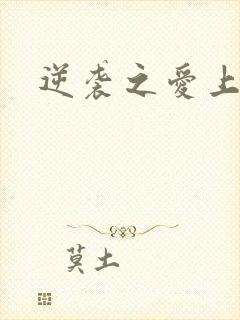 逆袭之爱上
莫土